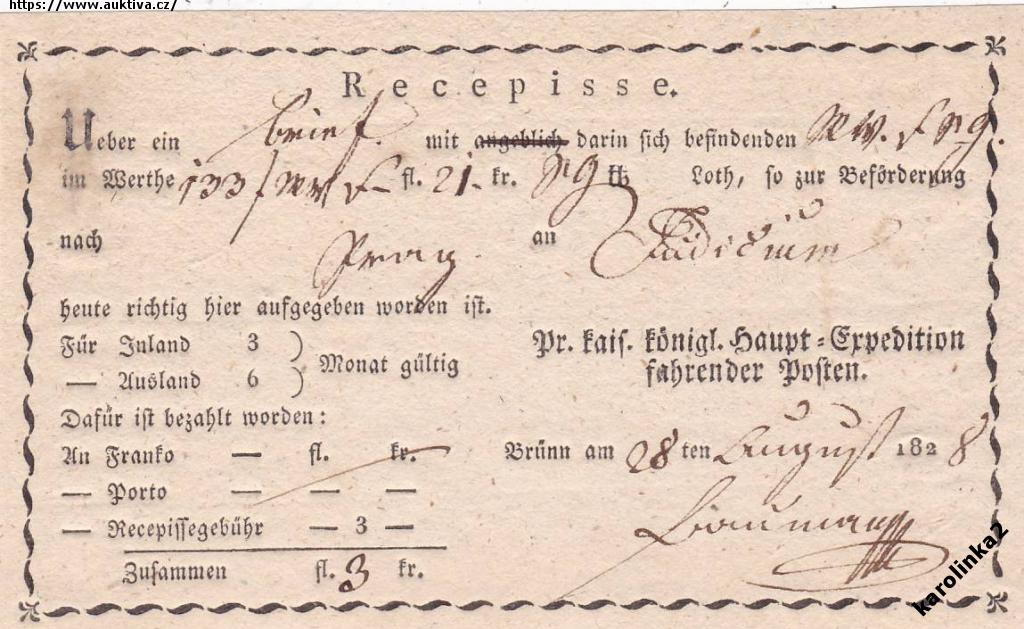 https://www.auktiva.cz/
Recepisse.
Ueber ein brief mit angeblich darin sich befindenden
im Werthe 133 fl. 21 kr. Loth, so zur Beförderung
nach Prag an Judicium
heute richtig hier aufgegeben worden ist.
Für Inland 3
— Ausland 6
Monat gültig
Pr. kais. königl. Haupt-Expedition
fahrender Posten.
Dafür ist bezahlt worden:
An Franko — fl. kr.
— Porto — — —
— Recepissegebühr — 3 —
Zusammen fl. 3 kr.
Brünn am 28 ten August 1828
karolinka2